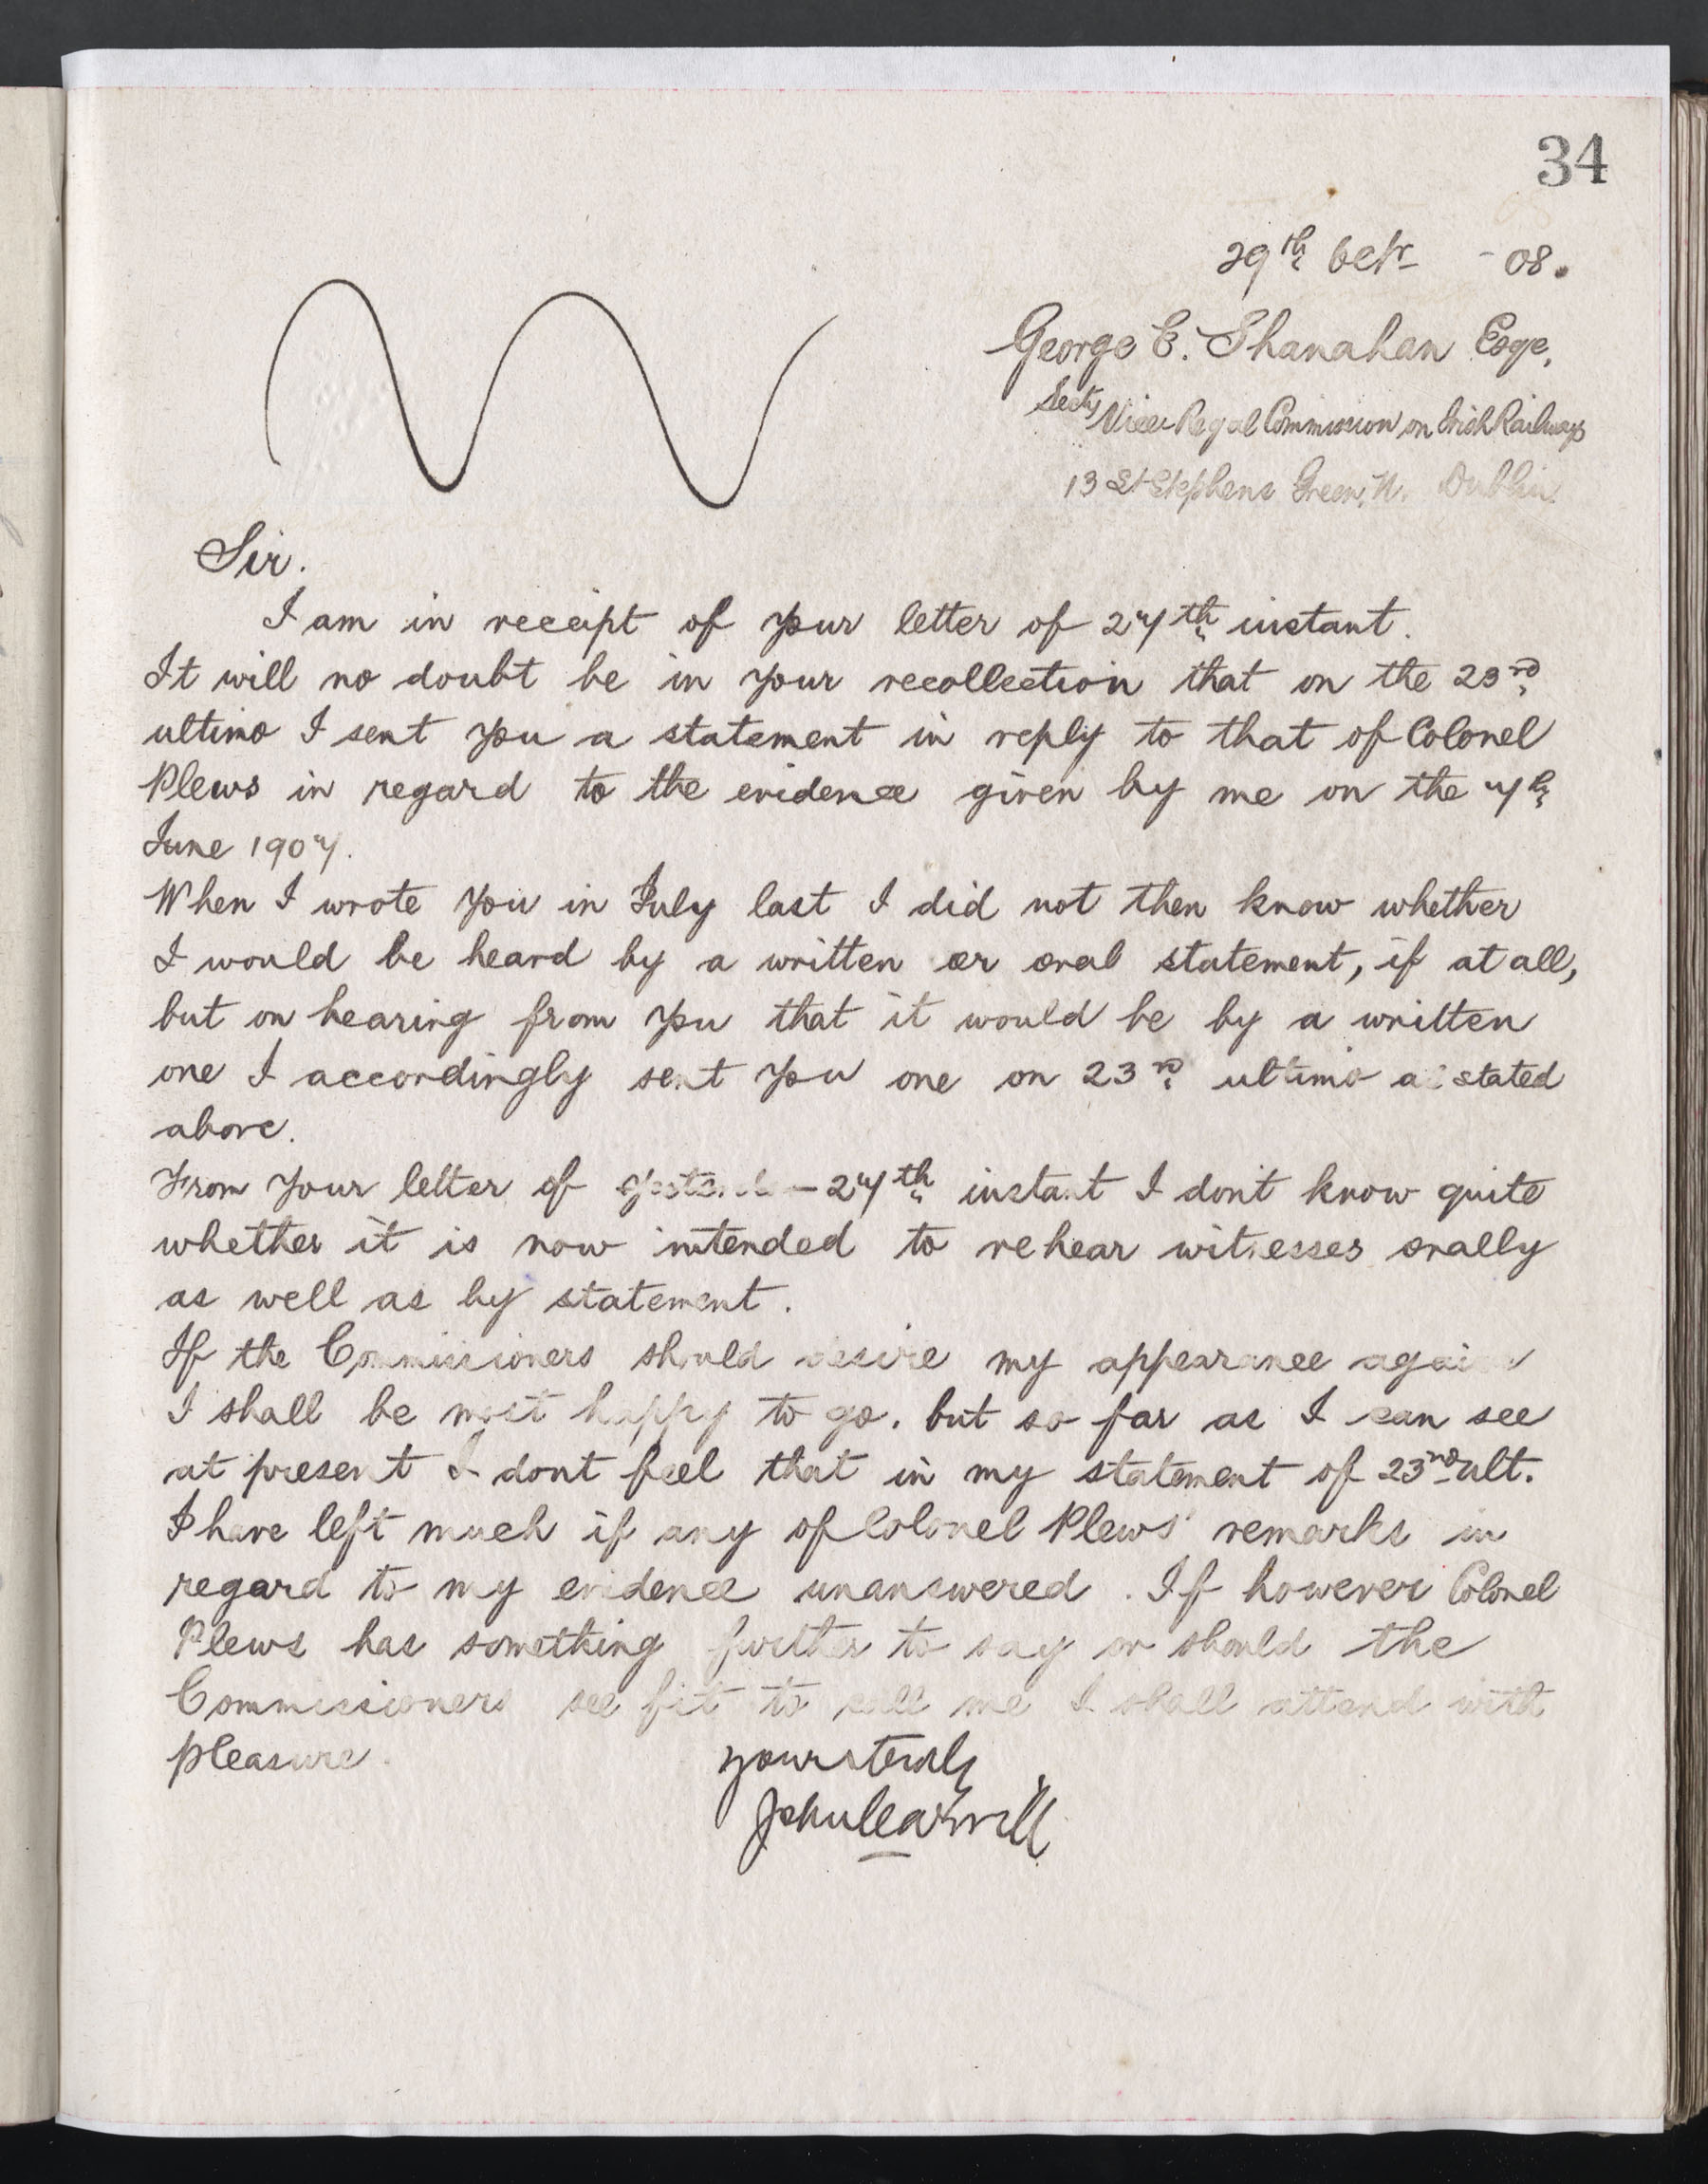 34
29th Octr - 08.
George C. Shanahan Esqe,
Secty Vice-Regal Commission on Irish Railways
13 St Stephens Green, N. Dublin.
Sir.
I am in receipt of your letter of 27th instant.
It will no doubt be in your recollection that on the 23rd
ultimo I sent you a statement in reply to that of Colonel
Plews in regard to the evidence given by me on the 7th
June 1907.
When I wrote you in July last I did not then know whether
I would be heard by a written or oral statement, if at all,
but on hearing from you that it would be by a written
one I accordingly sent you one on 23rd ultimo as stated
above.
From your letter of 27th instant I don't know quite
whether it is now intended to rehear witnesses orally
as well as by statement.
If the Commissioners should desire my appearance again
I shall be most happy to go. but so far as I can see
at present I dont feel that in my statement of 23rd ult.
I have left much if any of Colonel Plews' remarks in
regard to my evidence unanswered. If however Colonel
Plews has something further to say or should the
Commissioners see fit to call me I shall attend with
pleasure.
yours truly